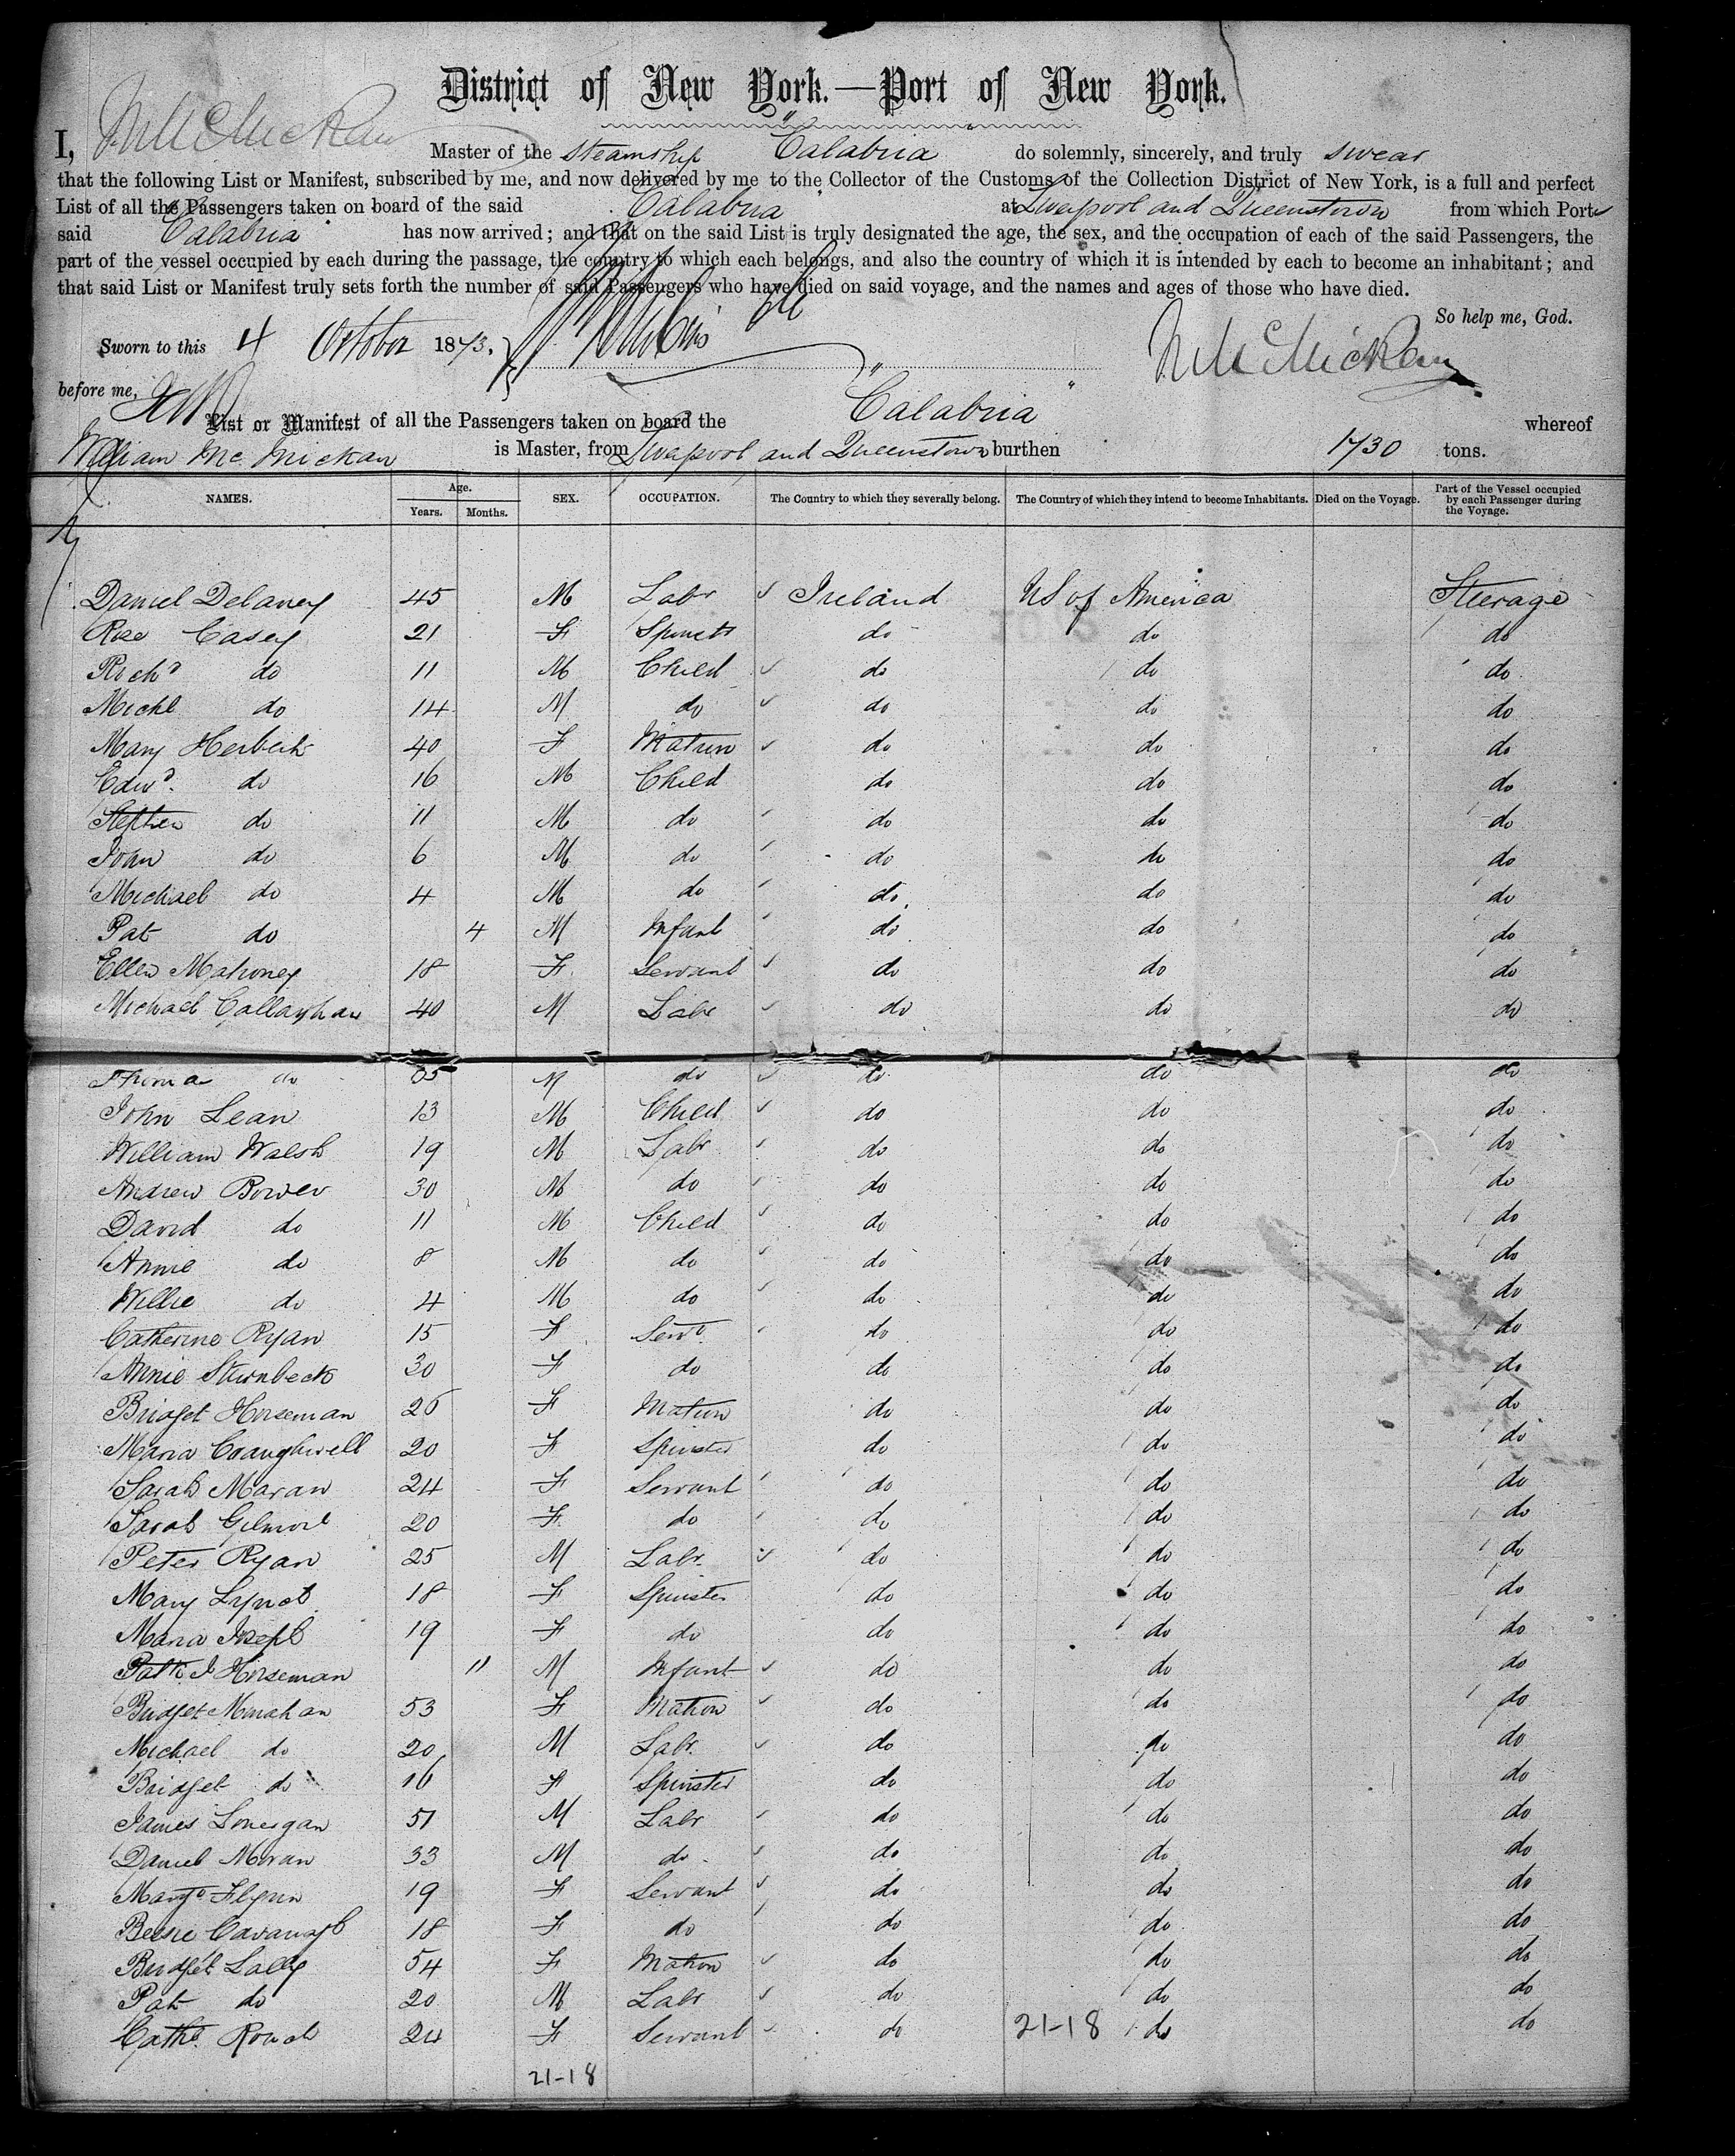 District of New York.—Port of New York.
I, Master of the steamship "Calabria" do solemnly, sincerely, and truly swear
that the following List or Manifest, subscribed by me, and now delivered by me to the Collector of the Customs of the Collection District of New York, is a full and perfect
List of all the Passengers taken on board of the said Calabria at Liverpool and Queenstown from which Ports
said Calabria has now arrived; and that on the said List is truly designated the age, the sex, and the occupation of each of the said Passengers, the
part of the vessel occupied by each during the passage, the country to which each belongs, and also the country of which it is intended by each to become an inhabitant; and
that said List or Manifest truly sets forth the number of said Passengers who have died on said voyage, and the names and ages of those who have died.
So help me, God.
Sworn to this 4 October 1873.
before me,
List or Manifest of all the Passengers taken on board the "Calabria" whereof
William Mc Mickan is Master, from Liverpool and Queenstown burthen 1730 tons.
NAMES. Age. Years. Months. SEX. OCCUPATION. The Country to which they severally belong. The Country of which they intend to become Inhabitants. Died on the Voyage. Part of the Vessel occupied by each Passenger during the Voyage.
Daniel Delaney 45 M Labr Ireland US of America Steerage
Rose Casey 21 F Spinstr do do do
Richd do 11 M Child do do do
Michl do 14 M do do do do
Mary Herbert 40 F Matron do do do
Edwd. do 16 M Child do do do
Stephen do 11 M do do do do
John do 6 M do do do do
Michael do 4 M do do do do
Pat do 4 M Infant do do do
Ellen Mahoney 18 F Servant do do do
Michael Callaghan 40 M Labr do do do
do M do do do do
John Lean 13 M Child do do do
William Walsh 19 M Labr do do do
Andrew Bower 30 M do do do do
David do 11 M Child do do do
Annie do 8 M do do do do
Willie do 4 M do do do do
Catherine Ryan 15 F Servt do do do
Annie Sternbeck 30 F do do do do
Bridget Horseman 26 F Matron do do do
Maria Craughwell 20 F Spinster do do do
Sarah Maran 24 F Servant do do do
Sarah Gilmore 20 F do do do do
Peter Ryan 25 M Labr. do do do
Mary Lynch 18 F Spinster do do do
Maria Joseph 19 F do do do do
Patk J Horseman 11 M Infant do do do
Bridget Monahan 53 F Matron do do do
Michael do 20 M Labr. do do do
Bridget do 16 F Spinster do do do
James Lonergan 51 M Labr do do do
Daniel Moran 33 M do do do do
Margt Flynn 19 F Servant do do do
Bessie Cavanagh 18 F do do do do
Bridget Lally 54 F Matron do do do
Pat do 20 M Labr do do do
Cathe. Roach 24 F Servant do 21-18 do do
21-18